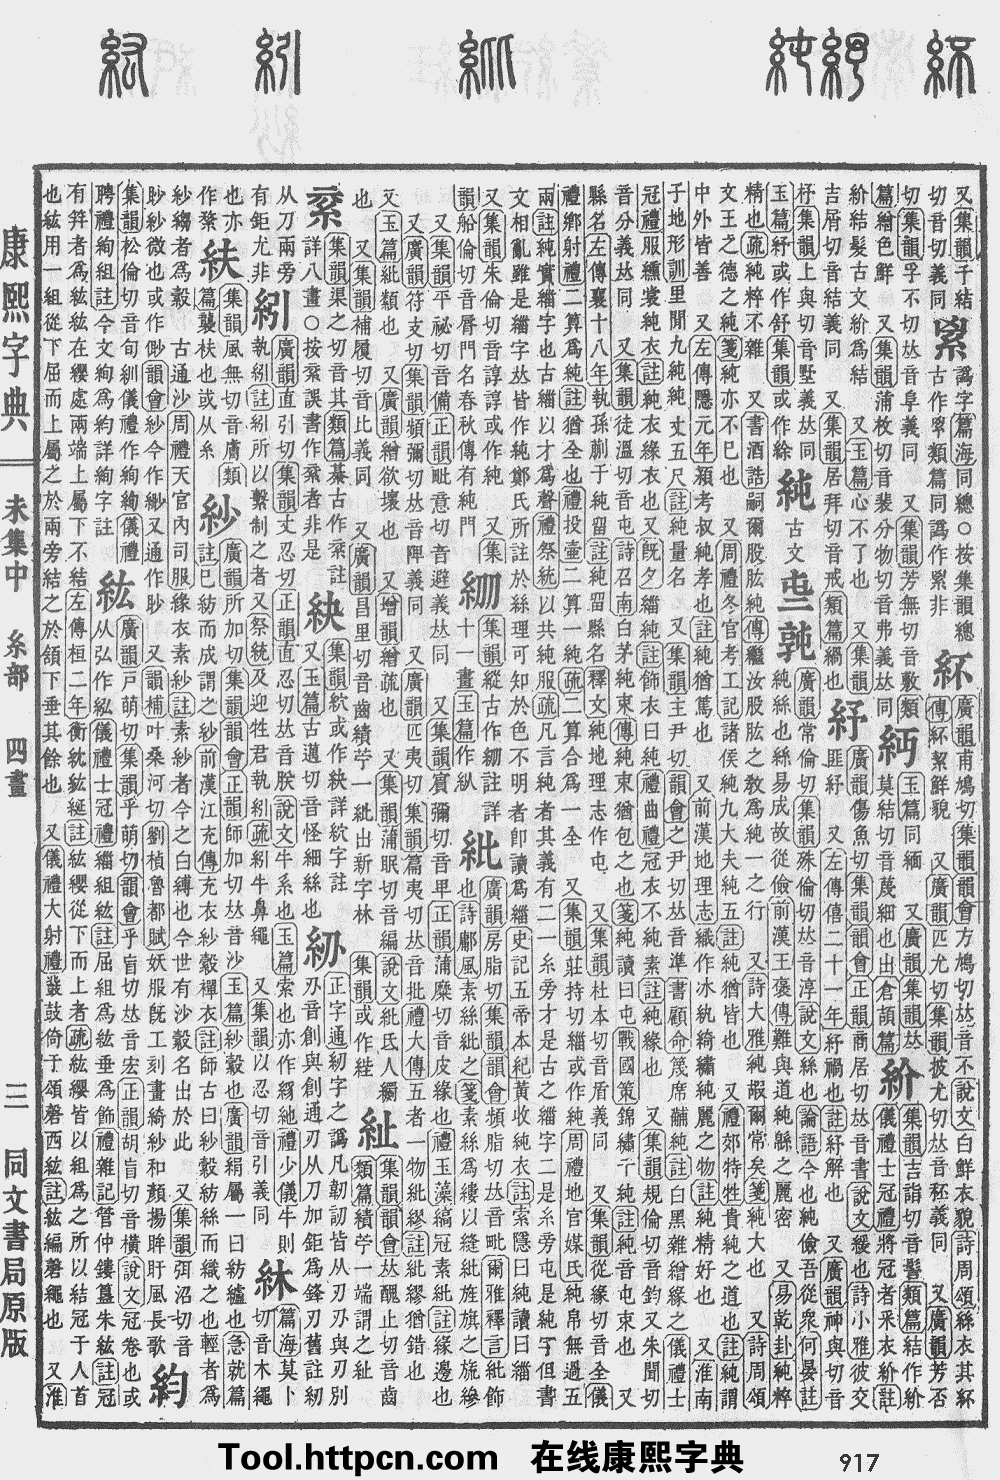 康熙字典
未集中 糸部 四畫
三
同文書局原版
又集韻千結
切音切義同
譌字篇海同總○按集韻總
類篇同譌作累非
紑
廣韻甫鳩切集韻韻會方鳩切𠀤音不說文白鮮衣貌詩周頌絲衣其紑
傳紑絜鮮貌 又廣韻匹尤切集韻披尤切𠀤音秠義同 又廣韻芳否
切集韻孚不切𠀤音阜義同 又集韻芳無切音敷類
篇繒色鮮 又集韻蒲枚切音裴分物切音弗義𠀤同
玉篇同緬 又廣韻集韻𠀤
莫結切音蔑細也出倉頡篇
紒
集韻吉詣切音髻類篇結作紒
儀禮士冠禮將冠者采衣紒註
紒結髮古文紒爲結 又玉篇心不了也 又集韻
吉屑切音結義同 又集韻居拜切音戒類篇綱也
紓
廣韻傷魚切集韻韻會正韻商居切𠀤音書說文緩也詩小雅彼交
匪紓 又左傳僖二十一年紓禍也註紓解也 又廣韻神與切音
杼集韻上與切音墅義𠀤同
玉篇紓或作舒集韻或作䋡
純
古文
廣韻常倫切集韻殊倫切𠀤音淳說文絲也論語今也純儉吾從衆何晏註
純絲也絲易成故從儉前漢王褒傳難與道純緜之麗密 又易乾卦純粹
精也疏純粹不雜 又書酒誥嗣爾股肱純傳繼汝股肱之敎爲純一之行 又詩大雅純嘏爾常矣箋純大也 又詩周頌
文王之德之純箋純亦不已也 又周禮冬官考工記諸侯純九大夫純五註純猶皆也 又禮郊特牲貴純之道也註純謂
中外皆善 又左傳隱元年潁考叔純孝也註純猶篤也 又前漢地理志織作冰紈綺繡純麗之物註純精好也 又淮南
子地形訓里閒九純純丈五尺註純量名 又集韻主尹切韻會之尹切𠀤音準書顧命篾席黼純註白黑雜繒緣之儀禮士
冠禮服纁裳純衣註純衣緣衣也 又旣夕緇純註飾衣曰純禮曲禮冠衣不純素註純緣也 又集韻規倫切音鈞又朱聞切
音分義𠀤同 又集韻徒溫切音屯詩召南白茅純束傳純束猶包之也箋純讀曰屯戰國策錦繡千純註純音屯束也 又
縣名左傳襄十八年執孫蒯于純留註純留縣名釋文純地理志作屯 又集韻杜本切音盾義同 又集韻從緣切音全儀
禮鄕射禮二算爲純註純猶全也禮投壺二算一純疏二算合爲一全 又集韻莊持切緇或作純周禮地官媒氏純帛無過五
兩註純實緇字也古緇以才爲聲禮祭統以共純服疏凡言純者其義有二一糸旁才是古之緇字二是糸旁屯是純字但書
文相亂雖是緇字𠀤皆作純鄭氏所註於絲理可知於色不明者卽讀爲緇史記五帝本紀黃收純衣註索隱曰純讀曰緇
又集韻朱倫切音諄諄或作純 又集
韻船倫切音脣門名春秋傳有純門
集韻縱古作䋞註詳
十一畫玉篇作縱
紕
廣韻房脂切集韻韻會頻脂切𠀤音毗爾雅釋言紕飾
也詩鄘風素絲紕之箋素絲爲縷以縫紕旌旗之旒縿
又集韻平祕切音備正韻毗意切音避義𠀤同 又集韻賓彌切音𤰞正韻蒲糜切音皮緣也禮玉藻縞冠素紕註緣邊也
又廣韻符支切集韻頻彌切𠀤音陴義同 又廣韻匹夷切集韻篇夷切𠀤音批禮大傳五者一物紕繆註紕繆猶錯也
又玉篇紕類也 又廣韻繒欲壞也 又增韻繒疏也 又集韻蒲眠切音編說文紕氐人䌫
也 又集韻補履切音比義同 又廣韻昌里切音齒績苧一紕出新字林 集韻或作
紪
集韻韻會𠀤醜止切音齒
類篇績苧一端謂之紪
集韻渠之切音其類篇綦古作䋈註
詳八畫○按䋈誤書作䋈者非是
紻
集韻㰠或作紻詳紻字註
又玉篇古邁切音怪細絲也
正字通紉字之譌凡韌訒皆从刃與刃別
刃音創與創通刃从刀加鉅爲鋒刃舊註紉
从刀兩旁
有鉅尤非
紖
廣韻直引切集韻丈忍切正韻直忍切𠀤音朕說文牛系也玉篇索也亦作䋎絼禮少儀牛則
執紖註紖所以繫制之者又祭統及迎牲君執紖疏紖牛鼻繩 又集韻以忍切音引義同
篇海莫卜
切音木繩
也亦
作鞪
紨
集韻風無切音膚類
篇襲袂也或从糸
紗
廣韻所加切集韻韻會正韻師加切𠀤音沙 玉篇紗縠也廣韻絹屬一曰紡纑也急就篇
註已紡而成謂之紗前漢江充傳充衣紗縠襌衣註師古曰紗縠紡絲而織之也輕者爲
紗縐者爲縠 古通沙周禮天官內司服緣衣素紗註素紗者今之白縳也今世有沙縠名出於此 又集韻弭沼切音
眇紗微也或作䏚韻會紗今作紗又通作眇 又韻補叶桑河切劉楨魯都賦妖服旣工刻畫綺紗和顏揚眸盱風長歌
約
集韻松倫切音旬紃儀禮作絢絢儀禮
聘禮絢組註今文絢爲約詳絢字註
紘
廣韻戸萌切集韻乎萌切韻會乎盲切𠀤音宏正韻胡盲切音橫說文冠卷也或
从弘作䋫儀禮士冠禮緇組紘註屈組爲紘垂爲飾禮雜記管仲鏤簋朱紘註冠
有笄者爲紘紘在纓處兩端上屬下不結左傳桓二年衡紞紘綖註紘纓從下而上者疏紘纓皆以組爲之所以結冠于人首
也紘用一組從下屈而上屬之於兩旁結之於頷下垂其餘也 又儀禮大射禮鼗鼓倚于頌磬西紘註紘編磬繩也 又淮
Tool.httpcn.com 在线康熙字典
917